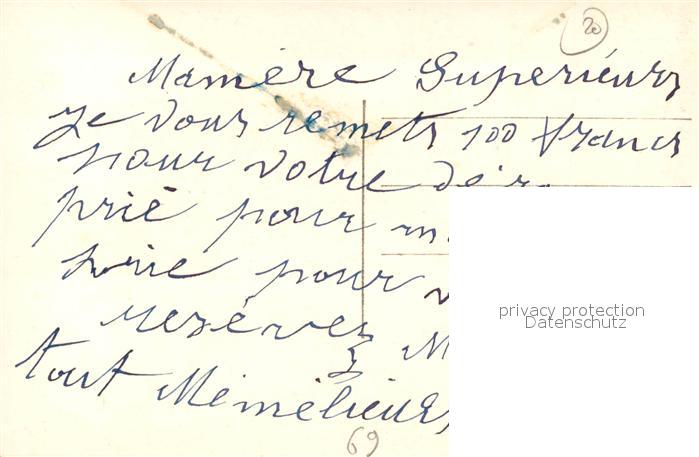 20
Mamère Superieurs
je vous remets 100 francs
pour votre
prié pour
prie pour
resérvez M
tout Mémélieurs,
privacy protection
Datenschutz
69